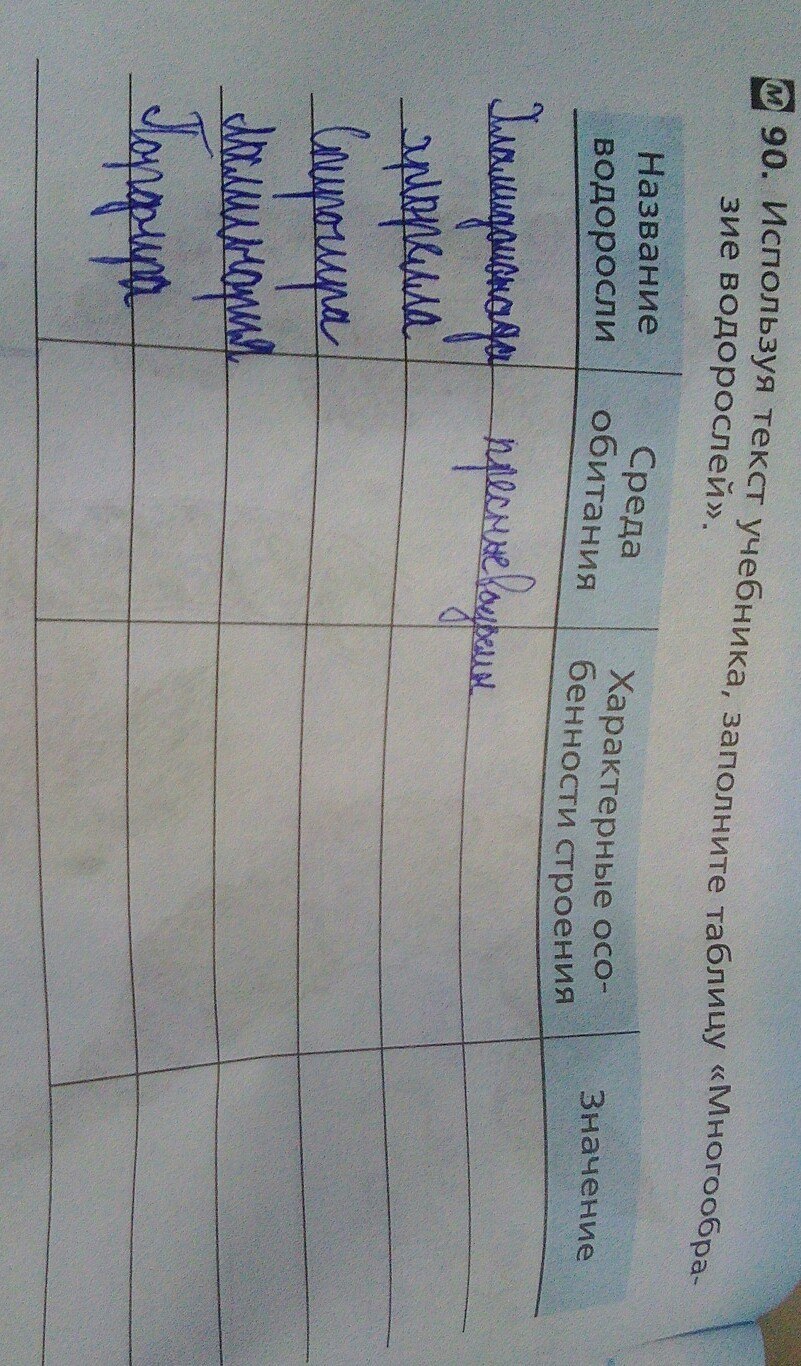 М 90. Используя текст учебника, заполните таблицу «Многообра-
зие водорослей».
Название
водоросли
Среда
обитания
Характерные осо-
бенности строения
Значение
Хламидомонада
хлорелла
Спирогира
Ламинария
Порфира